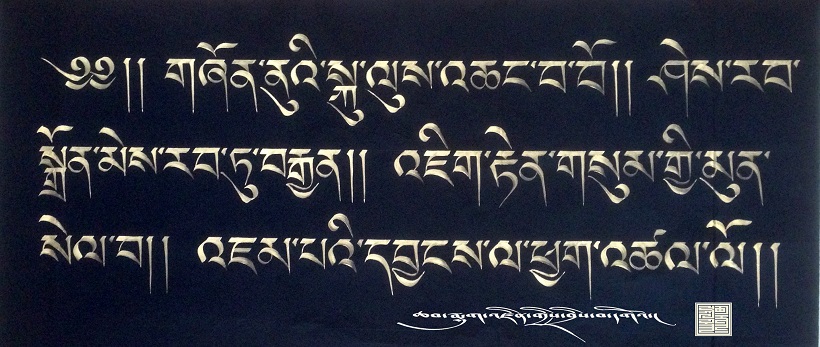 ༄༅།། གཞོན་ནུའི་སྐུ་ལུས་འཆང་བ་པོ།། ཤེས་རབ་
སྒྲོན་མེས་རབ་ཏུ་བརྒྱན།། འཇིག་རྟེན་གསུམ་གྱི་མུན་
སེལ་བ།། འཇམ་པའི་དབྱངས་ལ་ཕྱག་འཚལ་ལོ།།